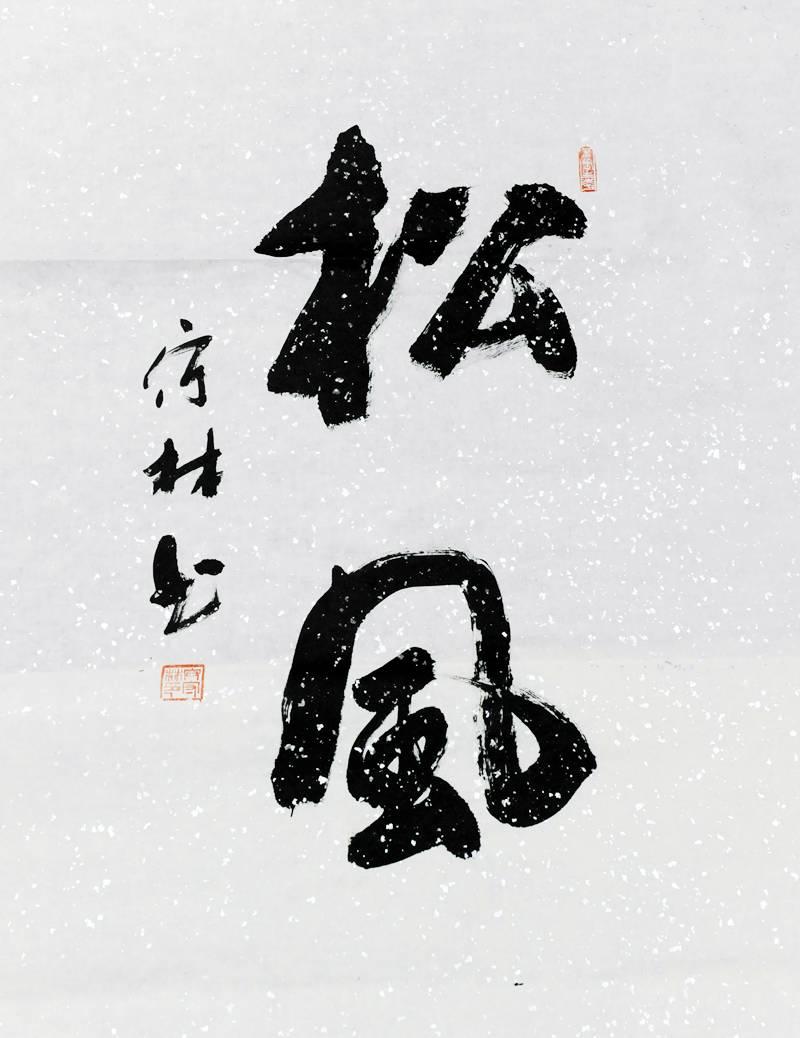 松風
林书